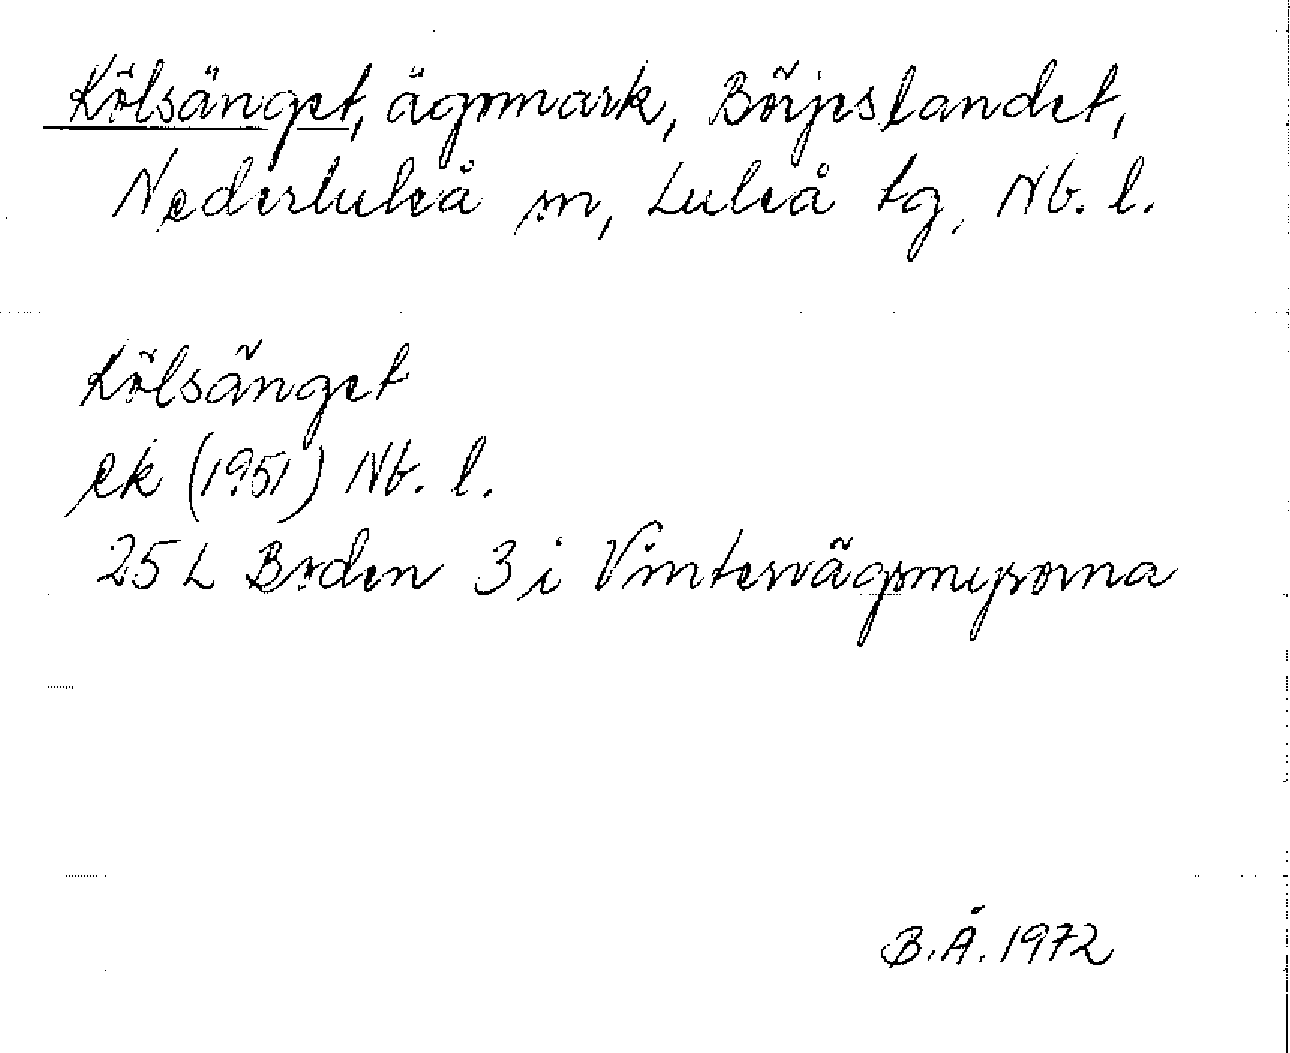 Kölsänget, ägomark, Börjeslandet,
Nederluleå sn, Luleå tg, Nb. l.
Kölsänget
ek (1951) Nb. l.
25 L Boden 3 i Vintervägsmyrorna
B.Å. 1972